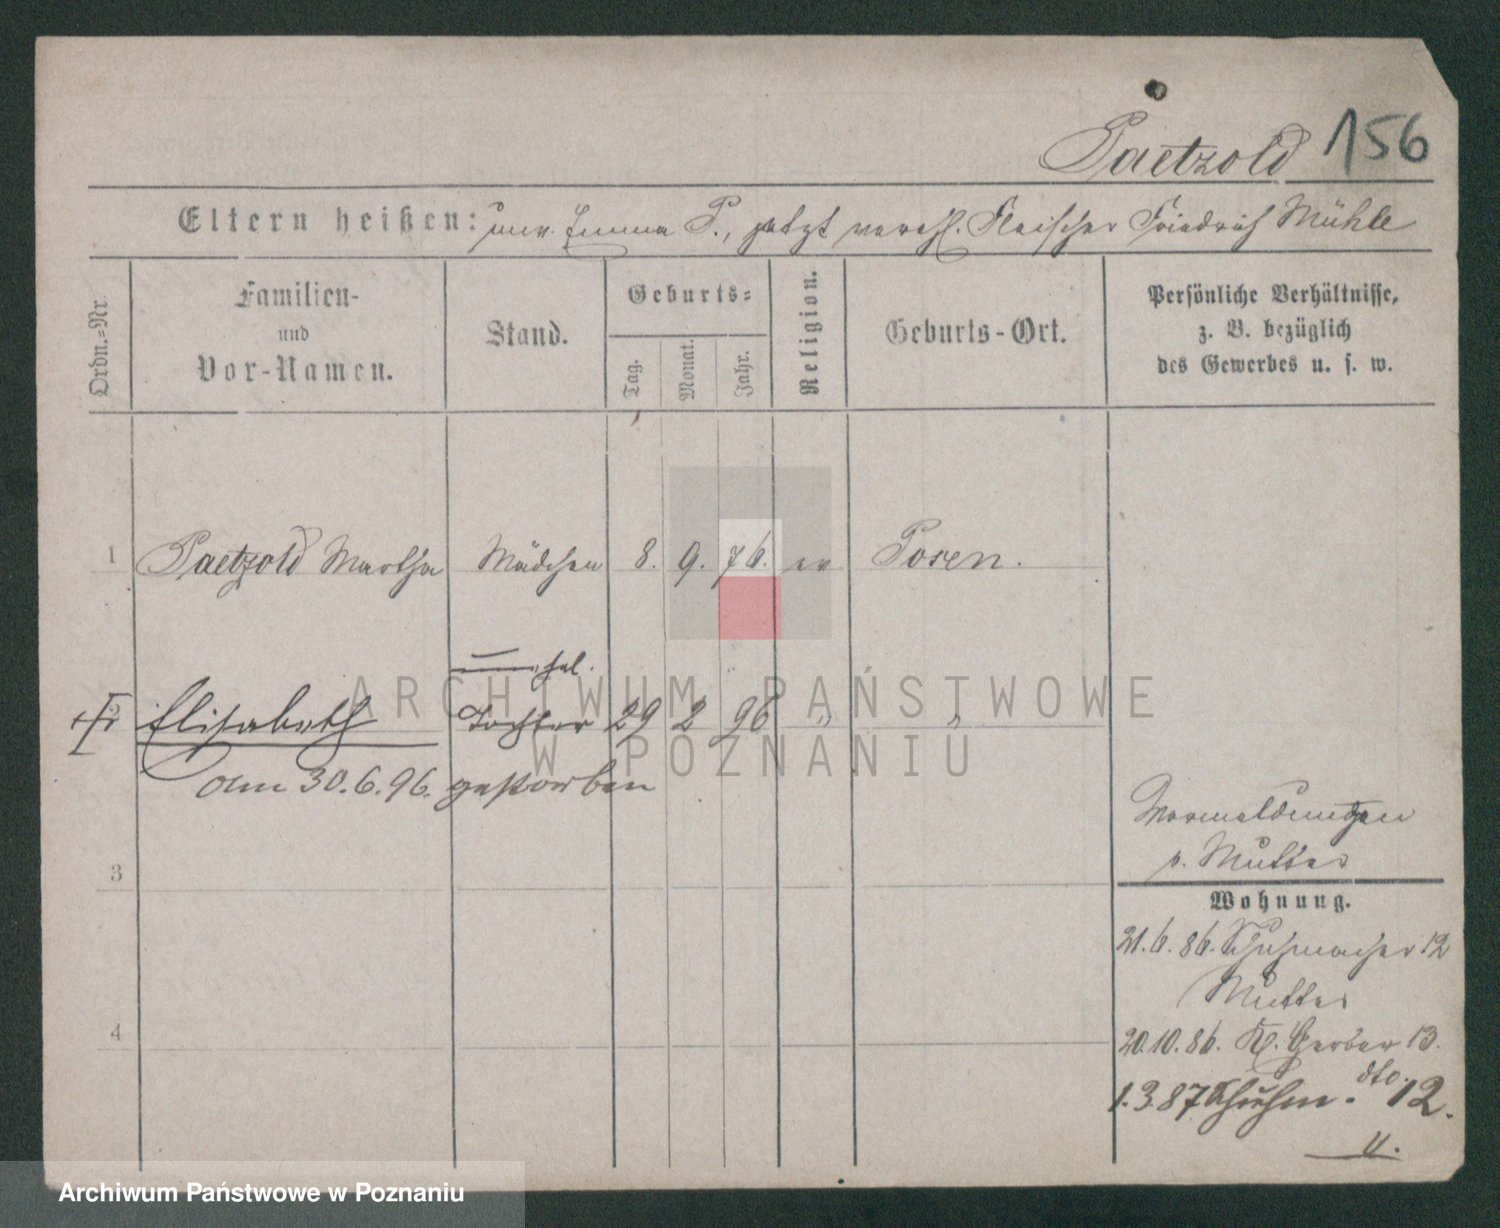 Paetzold 156
Eltern heißen: unv. Emma P., jetzt verehl. Fleischer Friedrich Mühle
Ordn.-Nr.
Familien-
und
Vor-Namen.
Stand.
Geburts-
Tag.
Monat.
Jahr.
Religion.
Geburts-Ort.
Persönliche Verhältnisse,
z. B. bezüglich
des Gewerbes u. s. w.
1 Paetzold Martha Mädchen 8. 9. 76. ev Posen.
ARCHIWUM PAŃSTWOWE
W POZNANIU
Elisabeth Tochter 29 2 96 " "
am 30.6.96. gestorben
3
4
v. Mutter
Wohnung.
21.6.86. Schuhmacher 12
Mutter
20.10.86. Kl. Gerber 13.
dto.
1.3.87 Schuhm. 12.
Archiwum Państwowe w Poznaniu